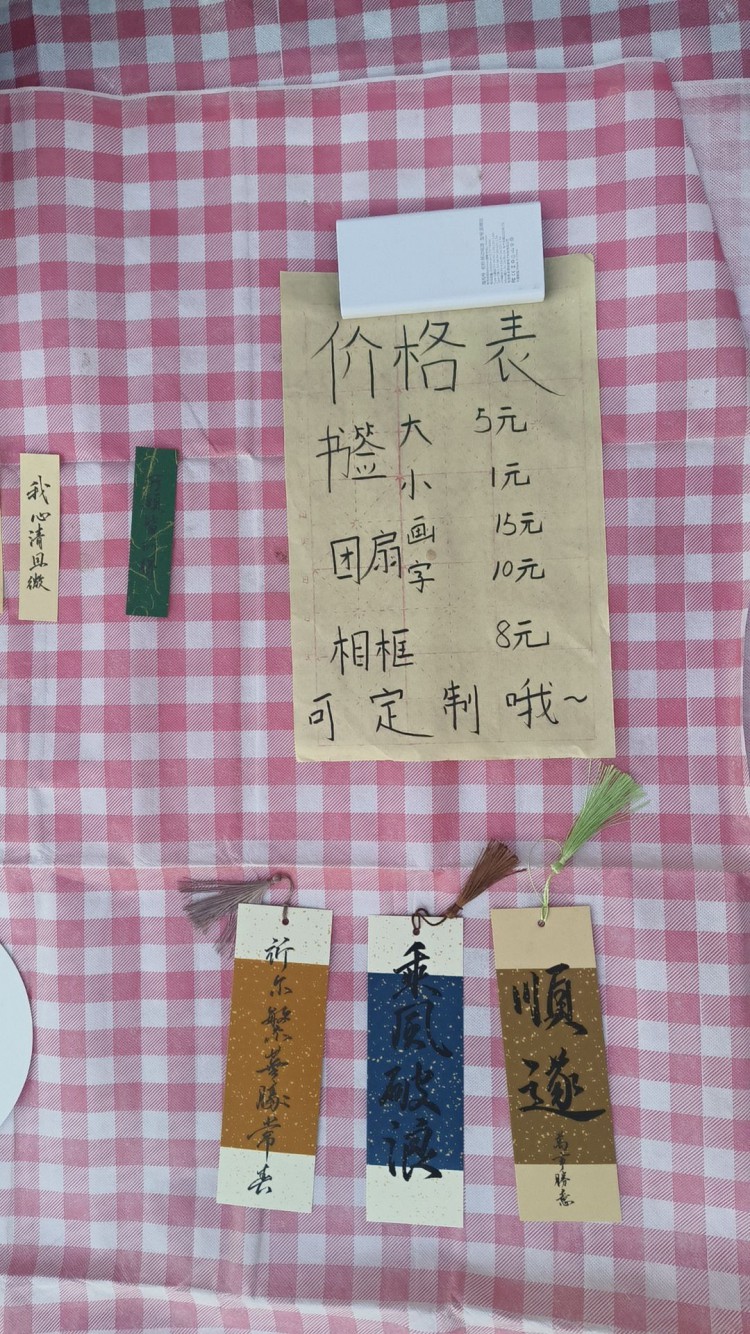 价格表
书签 大 5元
小 1元
团扇 画 15元
字 10元
相框 8元
可定制哦~
我心清且微
祈尔繁华胜常春
乘风破浪
順遂
萬事勝意